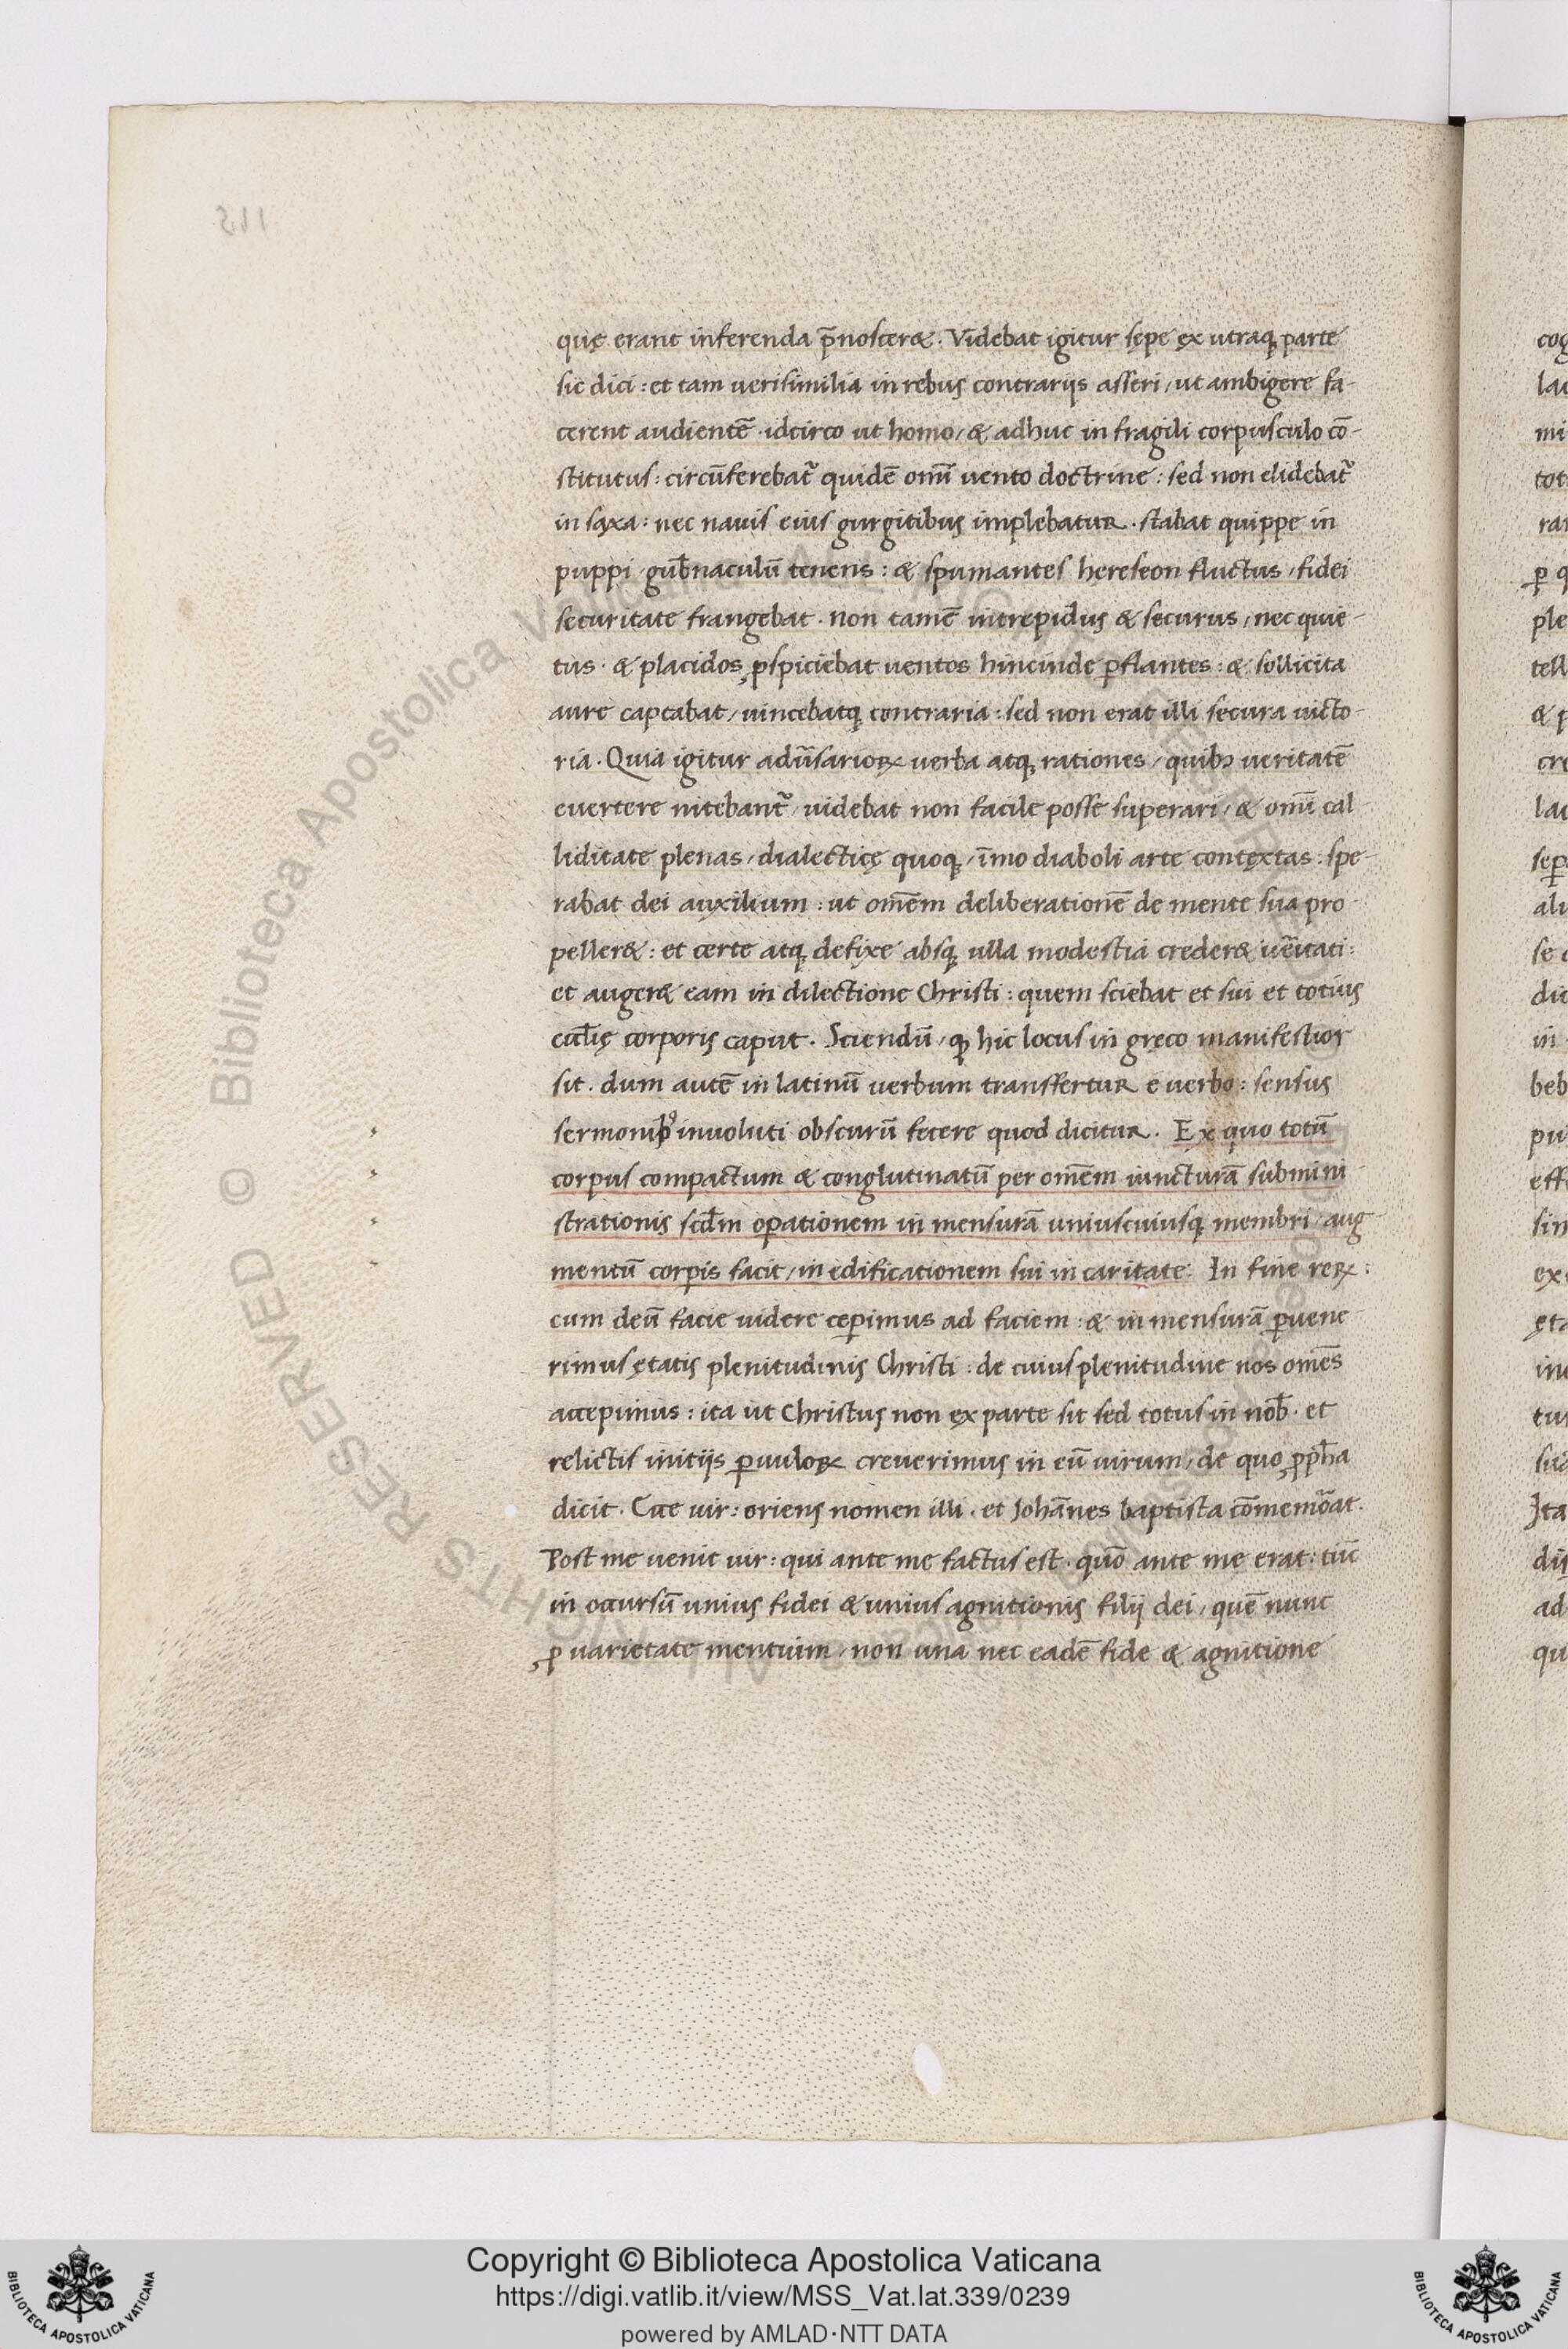 quę erant inferenda p̄noscer&. Videbat igitur sępe ex utraqꝫ parte
sic dici: et tam uerisimilia in rebus contrarijs asseri, ut ambigere fa-
cerent audientē. idcirco ut homo, & adhuc in fragili corpusculo cō-
stitutus: circūferebat᷑ quidē omī uento doctrine: sed non elidebat᷑
in saxa: nec nauis eius gurgitibus implebatur. stabat quippe in
puppi gub̄naculū tenens: & spumantes hereseon fluctus, fidei
securitate frangebat. non tamē intrepidus & securus, nec quie-
tus. & placidos ꝓspiciebat uentos hincinde ꝑflantes: & sollicita
aure captabat, uincebatqꝫ contraria: sed non erat illi secura uicto-
ria. Quia igitur adũsarioꝝ uerba atqꝫ rationes, quibꝰ ueritatē
euertere nitebant᷑, uidebat non facile posse superari, & omī cal
liditate plenas, dialecticę quoqꝫ, īmo diaboli arte contextas: spe-
rabat dei auxilium: ut om̄em deliberationē de mente sua pro-
peller&: et certe atqꝫ defixe absqꝫ ulla modestia creder& ũitati:
et auger& eam in dilectione Christi: quem sciebat et sui et totius
eccl̄ię corporis caput. Sciendū, ꝙ hic locus in gręco manifestior
sit. dum autē in latinū uerbum transfertur e uerbo: sensus
inuoluti obscurū fecere quod dicitur. Ex quo totū
corpus compactum & conglutinatū per om̄em iuncturā submini-
strationis scd̄m oꝑationem in mensurā uniuscuiusqꝫ membri, aug-
mentū corꝑis facit, in edificationem sui in caritate. In fine reꝝ:
cum deū facie uidere ceꝑimus ad faciem: & in mensurā ꝑuene-
rimus ętatis plenitudinis Christi: de cuius plenitudine nos om̄es
accepimus: ita ut Christus non ex parte sit sed totus in nob̄. et
relictis initijs ꝑuuloꝝ creuerimus in eū uirum, de quo ꝓpħa
dicit. Ecce uir: oriens nomen illi. et Johānes baptista cōmemōat.
Post me uenit uir: qui ante me factus est. quō ante me erat: tūc
in occursū unius fidei & unius agnitionis filij dei, quē nunc
ꝓ uarietate mentium, non una nec eadē fide & agnitione
Copyright © Biblioteca Apostolica Vaticana
https://digi.vatlib.it/view/MSS_Vat.lat.339/0239
powered by AMLAD·NTT DATA